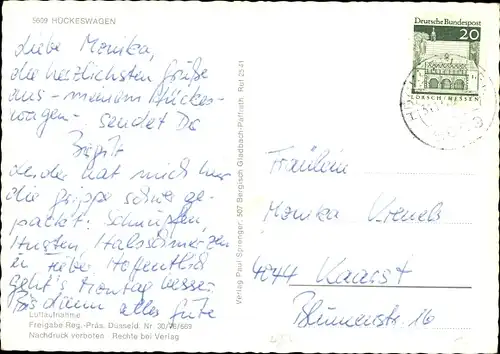 5609 HÜCKESWAGEN
Liebe Monika,
die herzlichsten Grüße
aus meinem Hückes-
wagen sendet Dir
Birgit
Leider hat mich hier
die Grippe schwer ge-
packt: Schnupfen,
Husten, Halsschmerzen
u. Fieber Hoffentlich
geht's Montag besser
Bis dann alles Gute
Luftaufnahme
Freigabe Reg.-Präs. Düsseld. Nr. 30/78/669
Nachdruck verboten Rechte bei Verlag
Verlag Paul Sprenger 507 Bergisch Gladbach-Paffrath Ruf 2541
Deutsche Bundespost
20
LORSCH/HESSEN
Fräulein
Monika
4044 Kaarst
Blumenstr. 16